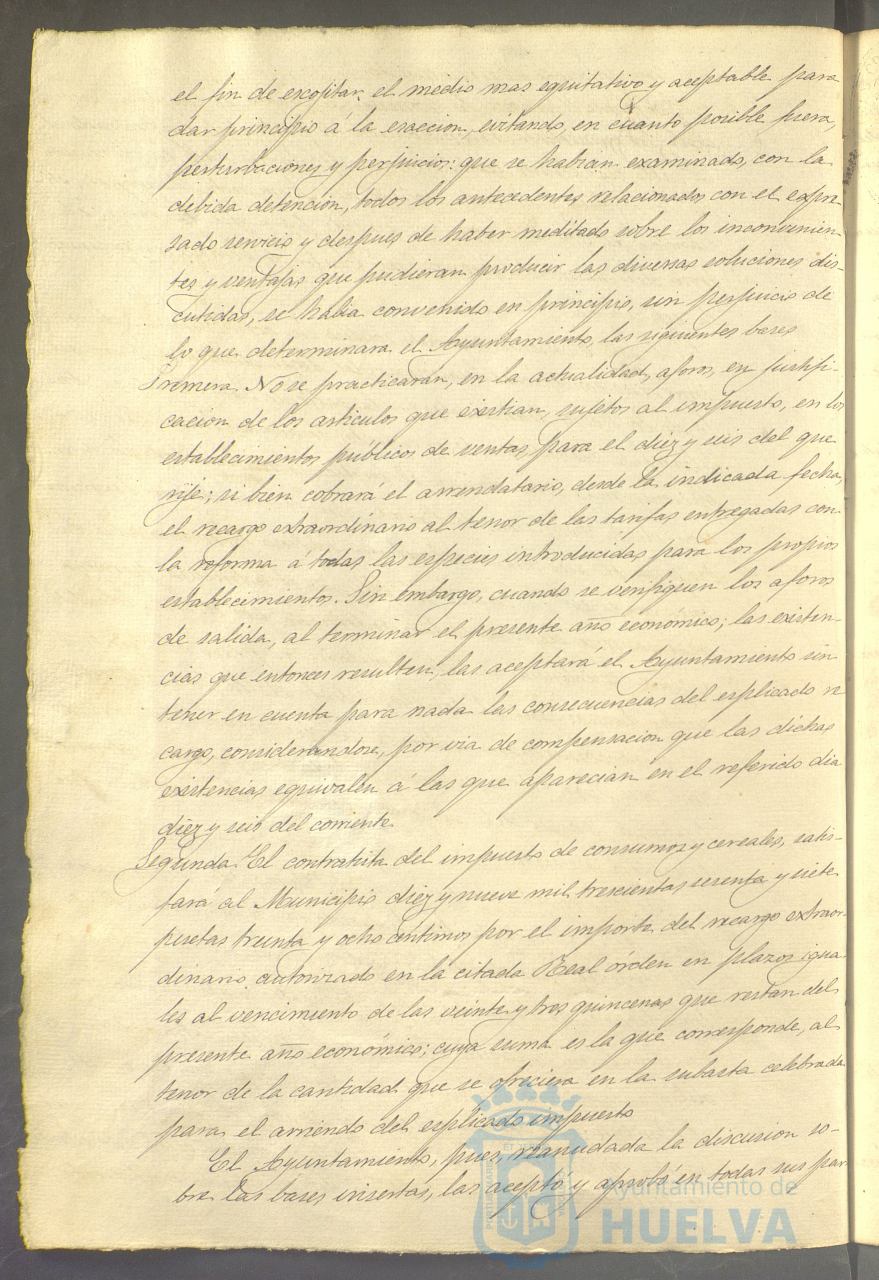 el fin de escojitar el medio mas equitativo y aceptable para
dar principio á la esaccion, evitando, en cuanto posible fuera,
perturbaciones y perjuicios: que se habian examinado, con la
debida detencion, todos los antecedentes relacionados con el espre-
sado servicio y despues de haber meditado sobre los inconvenien-
tes y ventajas que pudieran producir las diversas soluciones dis-
cutidas, se habia convenido en principio, sin perjuicio de
lo que determinara el Ayuntamiento, las siguientes bases
Primera. No se practicarán, en la actualidad, aforos, en justifi-
cacion de los articulos que existian, sujetos al impuesto, en los
establecimientos públicos de ventas, para el diez y seis del que
rije; si bien cobrará el arrendatario, desde la indicada fecha,
el recargo extraordinario al tenor de las tarifas entregadas con
la reforma á todas las especies introducidas para los propios
establecimientos. Sin embargo, cuando se verifiquen los aforos
de salida, al terminar el presente año económico; las existen-
cias que entonces resulten, las aceptará el Ayuntamiento sin
tener en cuenta para nada las consecuencias del esplicado re
cargo, considerandose, por via de compensacion que las dichas
existencias equivalen á las que aparecian en el referido dia
diez y seis del corriente
Segunda. El contratista del impuesto de consumos y cereales, satis-
fará al Municipio diez y nueve mil trescientas sesenta y siete
pesetas treinta y ocho centimos por el importe del recargo extraor-
dinario autorizado en la citada Real órden en plazos igua-
les al vencimiento de las veinte y tres quincenas que restan del
presente año económico; cuya suma es la que corresponde, al
tenor de la cantidad que se ofreciera en la subasta celebrada
para el arriendo del esplicado impuesto
El Ayuntamiento, pues, reanudada la discusion so-
bre las bases insertas, las aceptó y aprobó en todas sus par
Ayuntamiento de
HUELVA